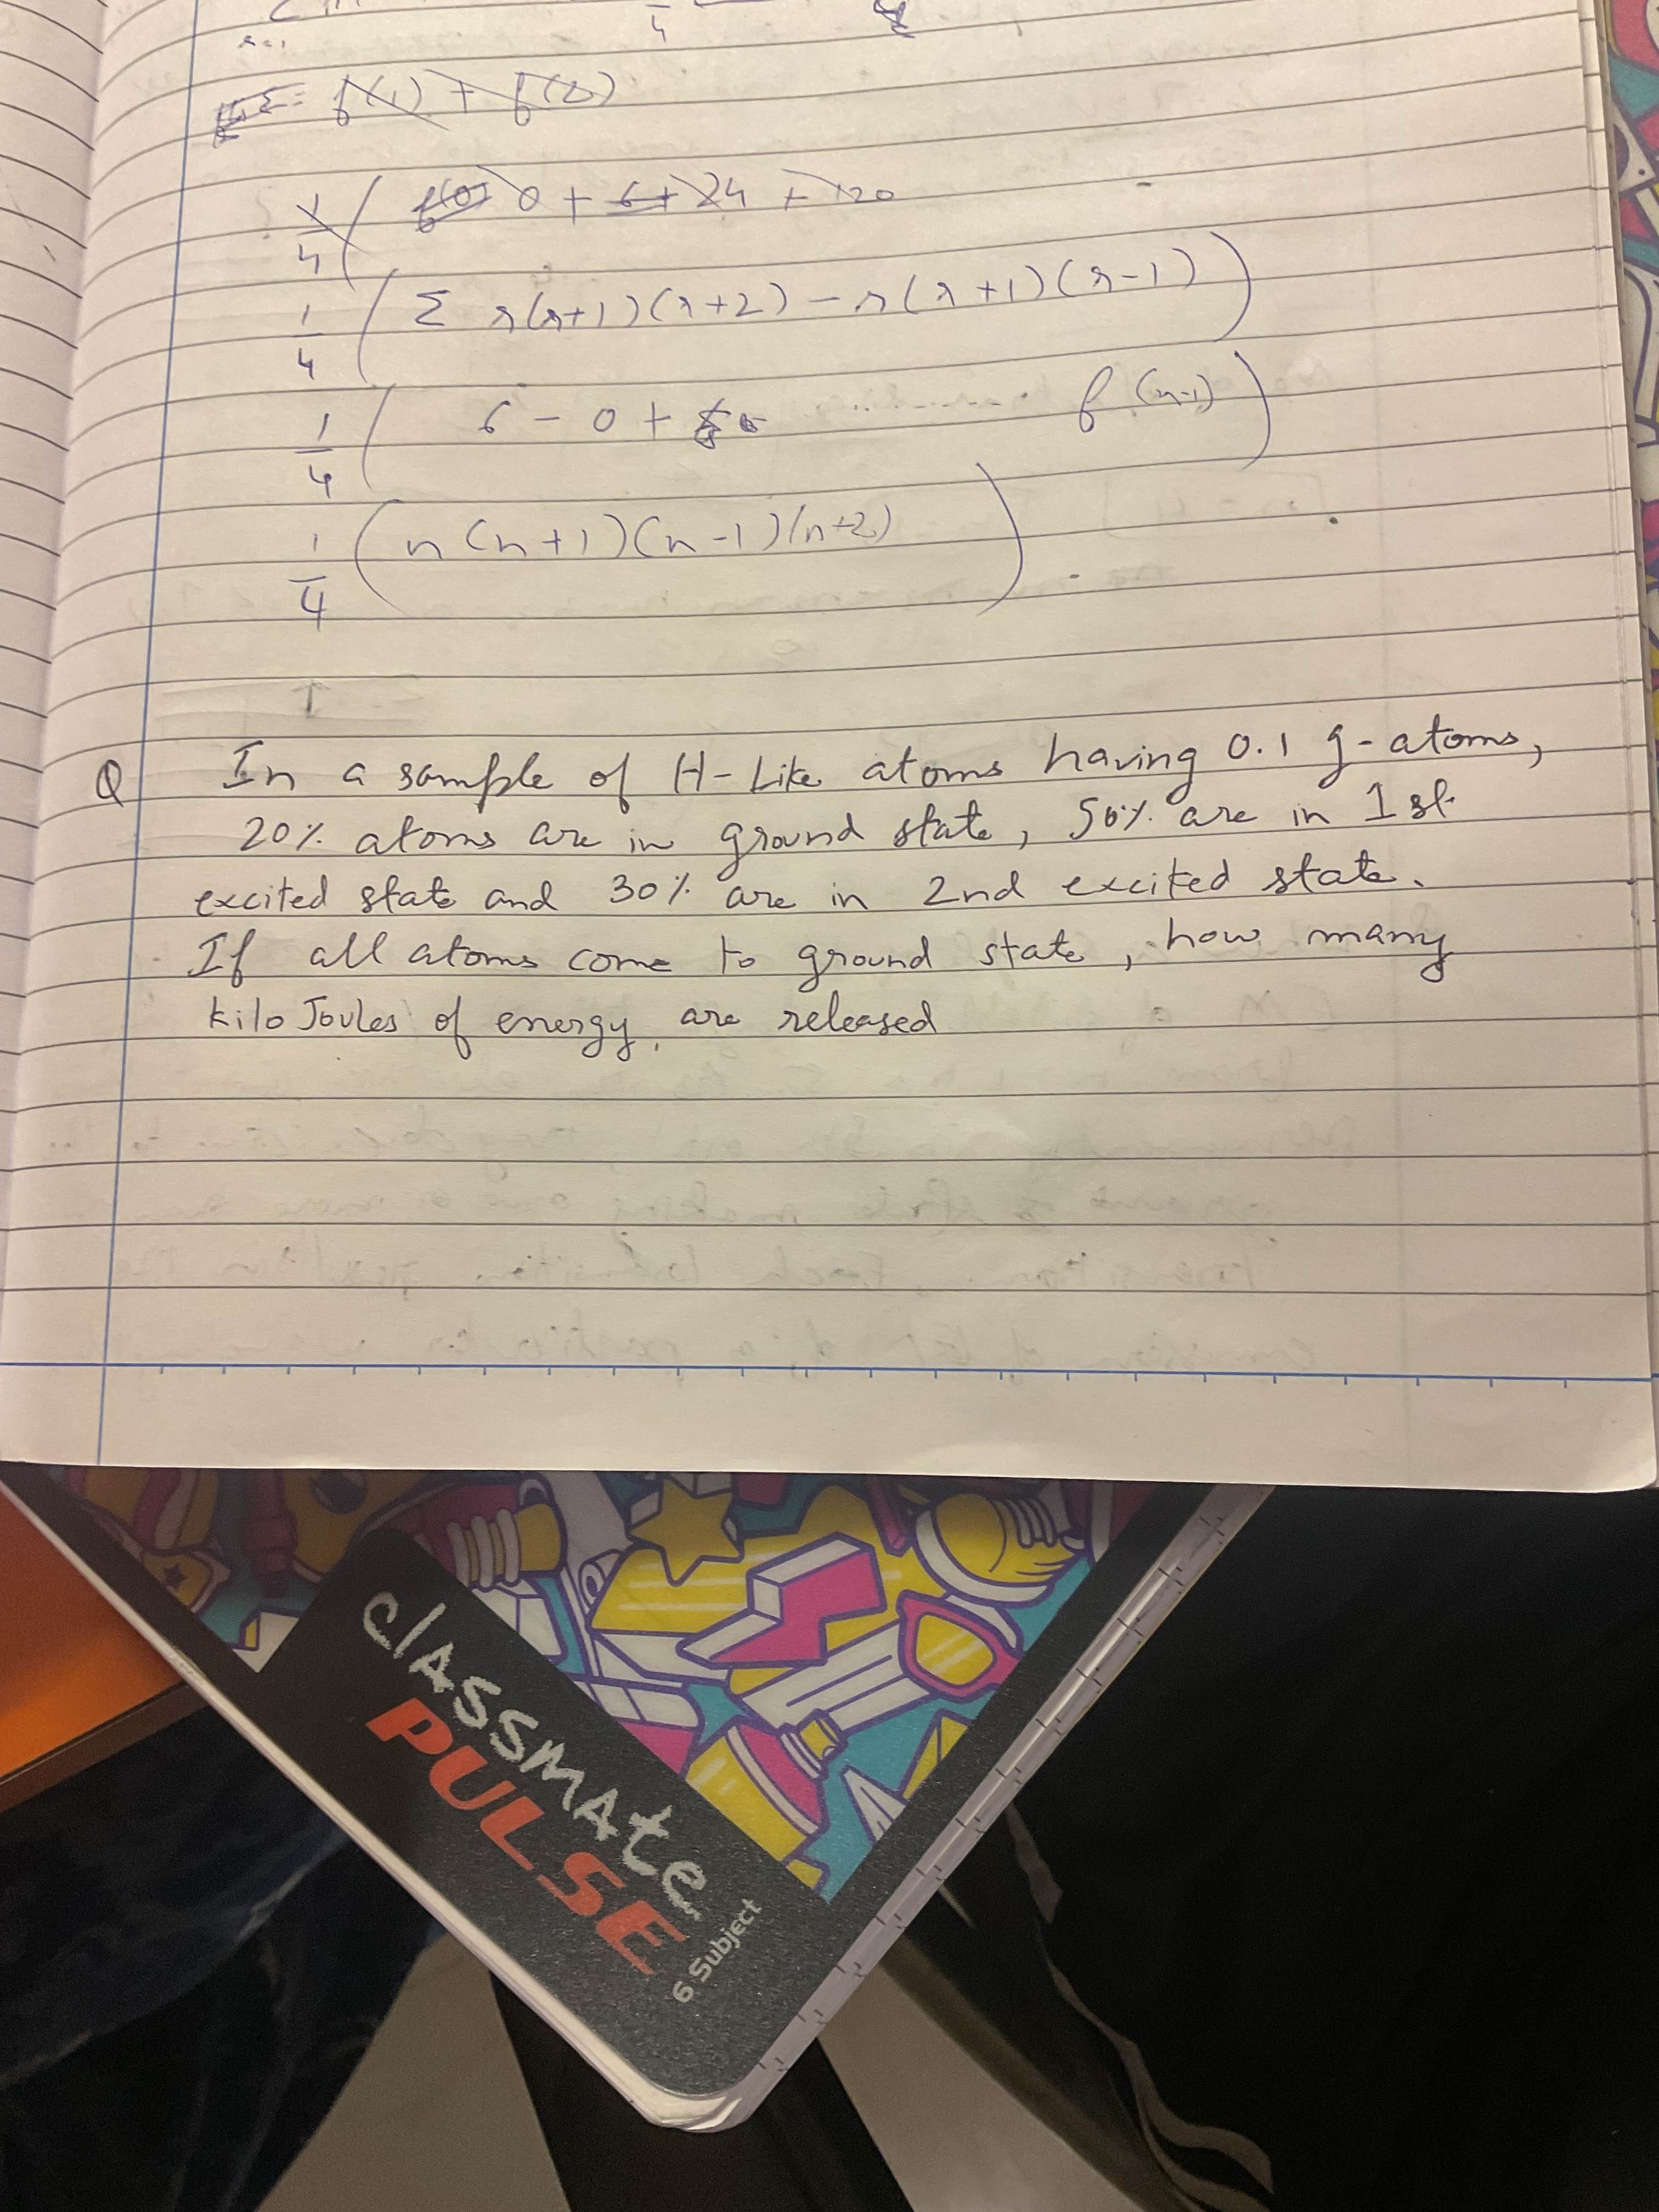 f(1) + f(2)
1/4 ( f(0) 0 + 6 + 24 + 120
1/4 ( Σ r(r+1)(r+2) - r(r+1)(r-1) )
1/4 ( 6 - 0 + ........... f(n-1) )
1/4 ( n(n+1)(n-1)(n+2) )
Q In a sample of H-Like atoms having 0.1 g-atoms,
20% atoms are in ground state, 50% are in 1st
excited state and 30% are in 2nd excited state.
If all atoms come to ground state, how many
kilo Joules of energy are released
classmate
PULSE
6 Subject